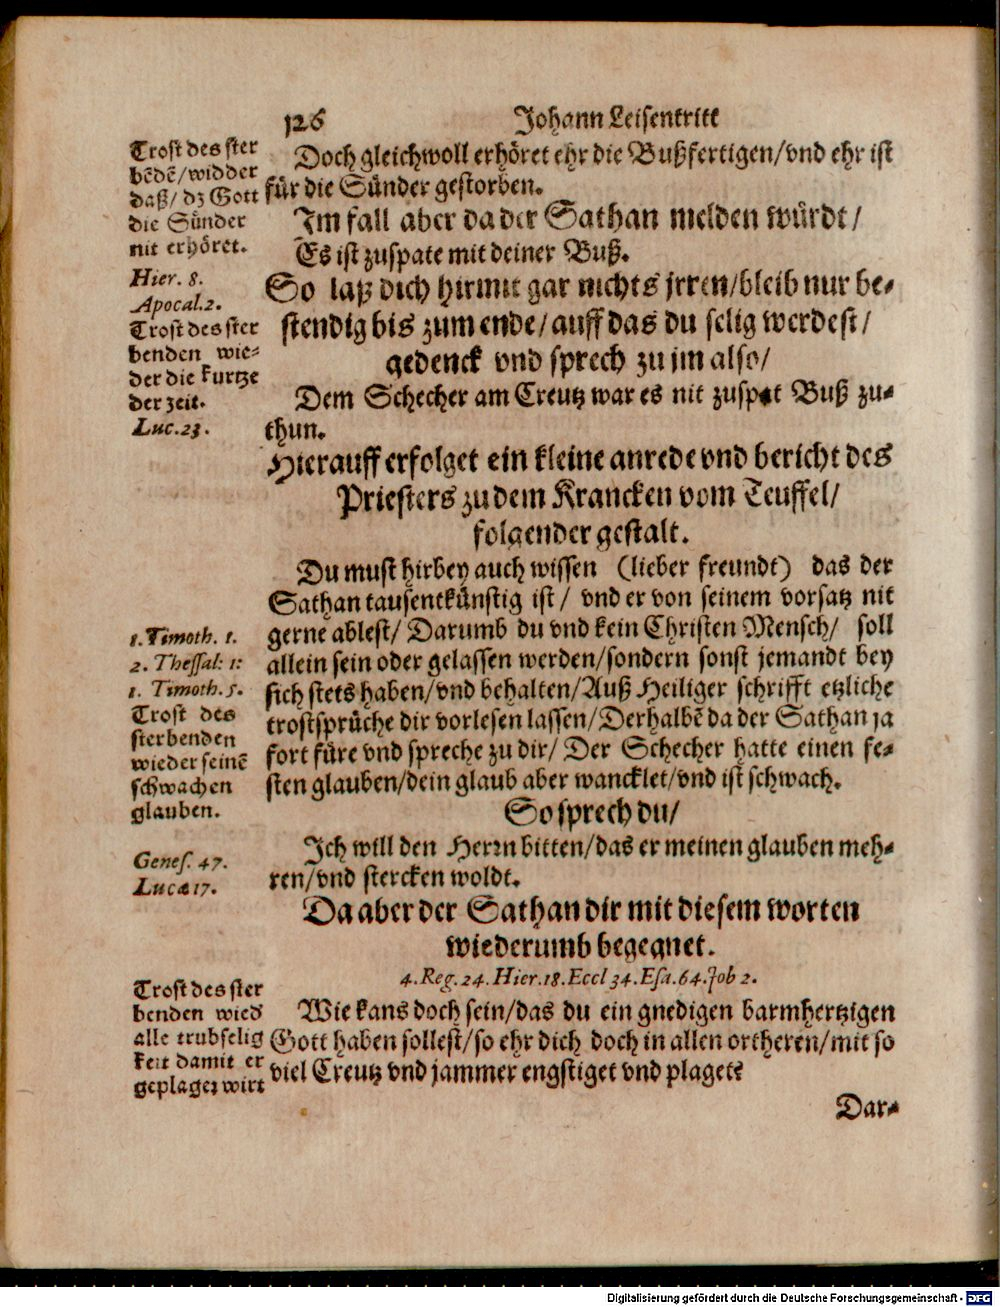 126 Johann Leisentritt
Trost des ster
bēdē/widder
daß/dz Gott
die Sünder
nit erhöret.
Hier. 8.
Apocal.2.
Trost des ster
benden wie-
der die kurtze
der zeit.
Luc.23.
Doch gleichwoll erhöret ehr die Bußfertigen/vnd ehr ist
für die Sünder gestorben.
Im fall aber da der Sathan melden würdt/
Es ist zuspate mit deiner Buß.
So laß dich hirmit gar nichts jrren/bleib nur be-
stendig bis zum ende/auff das du selig werdest/
gedenck vnd sprech zu jm also/
Dem Schecher am Creutz war es nit zuspat Buß zu-
thun.
Hierauff erfolget ein kleine anrede vnd bericht des
Priesters zu dem Krancken vom Teuffel/
folgender gestalt.
Du must hirbey auch wissen (lieber freundt) das der
Sathan tausentkünstig ist/ vnd er von seinem vorsatz nit
gerne ablest/ Darumb du vnd kein Christen Mensch/ soll
allein sein oder gelassen werden/sondern sonst jemandt bey
sich stets haben/vnd behalten/Auß Heiliger schrifft etzliche
trostsprüche dir vorlesen lassen/Derhalbē da der Sathan ja
fort füre vnd spreche zu dir/ Der Schecher hatte einen fe-
sten glauben/dein glaub aber wancklet/vnd ist schwach.
1. Timoth. 1.
2. Thessal: 1:
1. Timoth. 5.
Trost des
sterbenden
wieder seinē
schwachen
glauben.
So sprech du/
Ich will den Herrn bitten/das er meinen glauben meh-
ren/vnd stercken woldt.
Genes. 47.
Luca 17.
Da aber der Sathan dir mit diesem worten
wiederumb begegnet.
4.Reg.24.Hier.18.Eccl 34.Esa.64.Job 2.
Trost des ster
benden wied
alle trubselig
keit damit er
geplaget wirt
Wie kans doch sein/das du ein gnedigen barmhertzigen
Gott haben sollest/so ehr dich doch in allen ortheren/mit so
viel Creutz vnd jammer engstiget vnd plaget?
Dar-
Digitalisierung gefördert durch die Deutsche Forschungsgemeinschaft - DFG